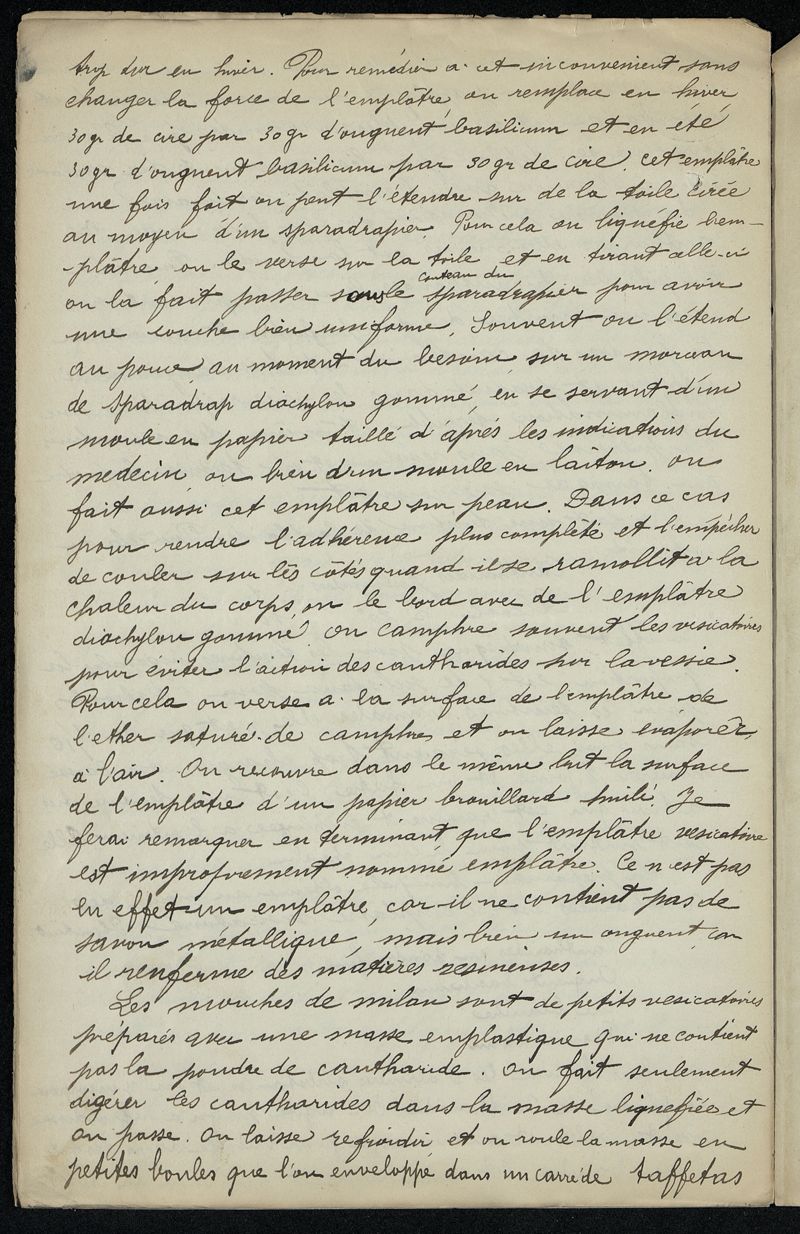 trop dur en hiver. Pour remédier a cet inconvenient sans
changer la force de l'emplâtre, on remplace en hiver
30gr de cire par 30gr d'onguent basilicum et en été
30gr d'onguent basilicum par 30gr de cire. cet emplâtre
une fois fait on peut l'étendre sur de la toile cirée
au moyen d'un sparadrapier. Pour cela on liquefie l'em-
-plâtre, on le verse sur la toile et en tirant celle-ci
couteau du
on la fait passer sous le sparadrapier pour avoir
une couche bien uniforme. Souvent on l'étend
au pouce, au moment du besoin sur un morceau
de sparadrap diachylon gommé, en se servant d'un
moule en papier taillé d'aprés les indications du
medecin, ou bien d'un moule en laiton. On
fait aussi cet emplâtre sur peau. Dans ce cas
pour rendre l'adhérence plus complête et l'empêcher
de couler sur les côtés quand il se ramollit a la
chaleur du corps, on le bord avec de l'emplâtre
diachylon gommé. On camphre souvent les vesicatoires
pour éviter l'action des cantharides sur la vessie.
Pour cela on verse a la surface de l'emplâtre de
l'ether saturé de camphre et on laisse évaporer
à l'air. On recouvre dans le même but la surface
de l'emplâtre d'un papier brouillard huilé. Je
ferai remarquer en terminant que l'emplâtre vesicatoire
est improprement nommé emplâtre. Ce n'est pas
en effet un emplâtre, car il ne contient pas de
savon métallique, mais bien un onguent, car
il renferme des matières resineuses.
Les mouches de milan sont de petits vesicatoires
préparés avec une masse emplastique qui ne contient
pas la poudre de cantharide. On fait seulement
digérer les cantharides dans la masse liquefiée et
on passe. On laisse refroidir et on roule la masse en
petites boules que l'on enveloppe dans un carré de taffetas